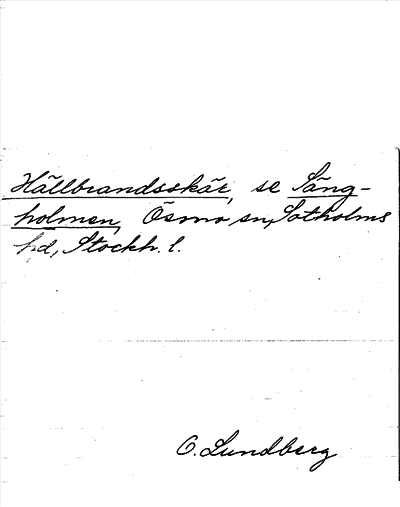 Hållbrandsskär, se Lång-
holmen, Ösmo sn, Sotholms
hd, Stockh. l.
O. Lundberg